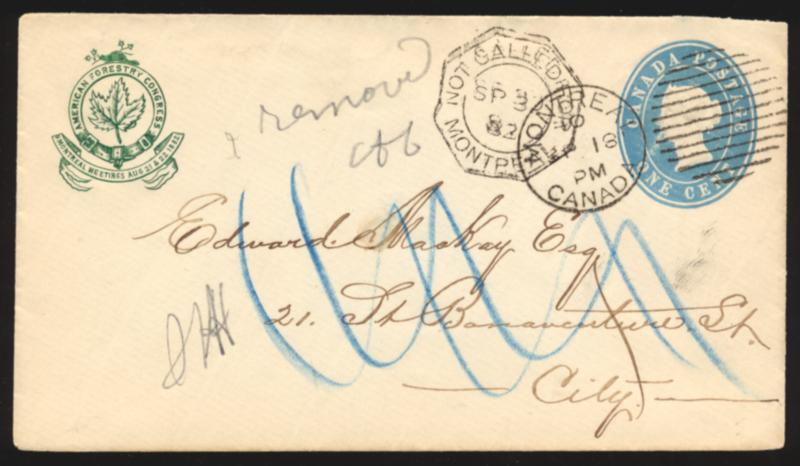 AMERICAN FORESTRY CONGRESS
MONTREAL MEETINGS AUG 21 & 23 1882
removed
NOT CALLED FOR
SP 3
82
MONTREAL
MONTREAL
18
PM
CANADA
CANADA POSTAGE
ONE CENT
Edward MacKay Esq
21. St Bonaventure St.
City